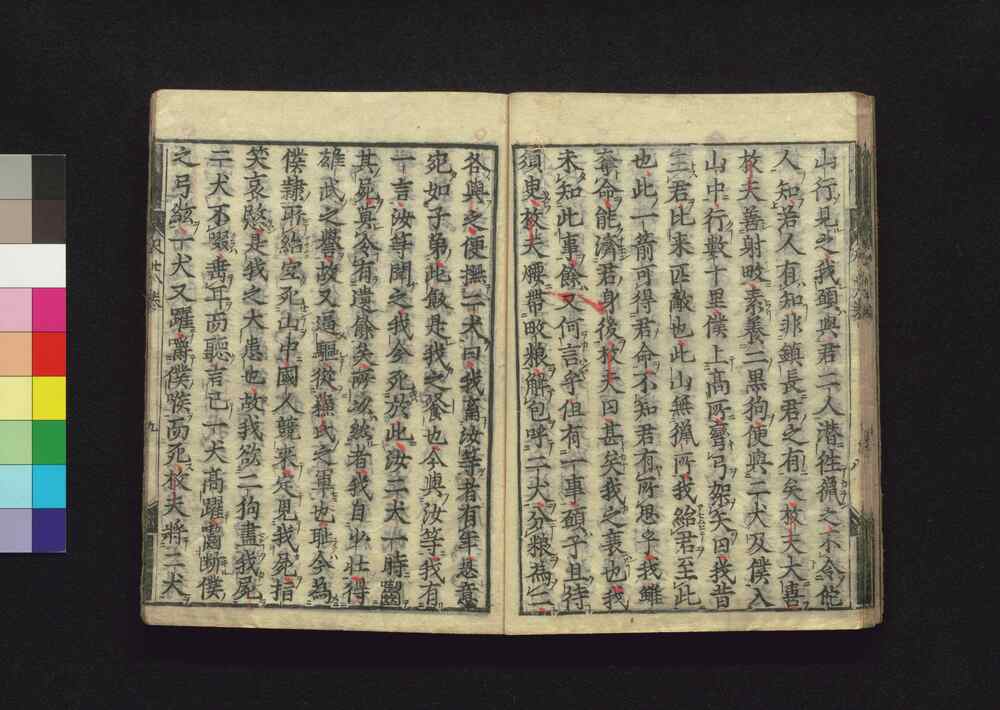 山行見之我願與君二人潜往獵之不令佗
人知若人有知非鎮長君之有矣枚夫大喜
枚夫善射畋素養二黒狗便與二犬及僕入
山中行數十里僕上高所彎弓架矢曰我昔
主君比來匹敵也此山無獵所我紿君至此
也此一箭可得君命不知君有所思乎我雖
奪命能濟君身後枚夫曰甚矣我之衰也我
未知此事餘又何言乎但有一事願子且待
須臾枚夫腰帶畋粮解包呼二犬分粮為二
各與之便撫二犬曰我畜汝等者有年慈意
宛如子弟此飯是我之餐也今與汝等我有
一言汝等聞之我今死於此汝二犬一時齧
其死莫令有遺餘矣所以然者我自少壯得
雄武之譽故又逼驅從撫氏之軍也耻今為
僕隷所紿空死山中國人競來定見我死指
笑哀愍是我之大患也故我欲二狗盡我屍
二犬不啜垂耳而聽言已一犬高躍齧斷僕
之弓絃一犬又躍嚼僕喉而死枚夫將二犬